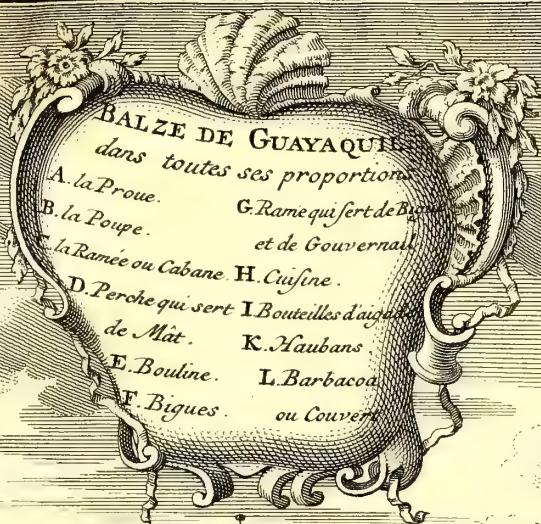 BALZE DE GUAYAQUIL
dans toutes ses proportions
A. la Proue.
B. la Poupe.
C. la Ramée ou Cabane.
D. Perche qui sert
de Mât.
E. Bouline.
F. Bigues.
G. Rame qui ſert de
et de Gouvernail
H. Cuiſine.
I. Bouteilles d'aigade
K. Haubans.
L. Barbacoa
ou Couvert